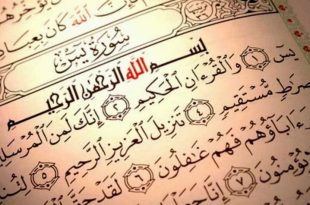 ٱللَّهَ كَانَ بِعِبَادِ
سُورَةُ يسٓ
بِسْمِ ٱللَّهِ ٱلرَّحْمَٰنِ ٱلرَّحِيمِ
يسٓ ١ وَٱلْقُرْءَانِ ٱلْحَكِيمِ ٢ إِنَّكَ لَمِنَ ٱلْمُرْسَلِ
صِرَٰطٍ مُّسْتَقِيمٍ ٤ تَنزِيلَ ٱلْعَزِيزِ ٱلرَّحِيمِ ٥ لِتُنذِ
ءَابَآؤُهُمْ فَهُمْ غَٰفِلُونَ ٦ لَقَدْ حَ
يُؤْمِنُونَ ٧ إِنَّا جَعَ